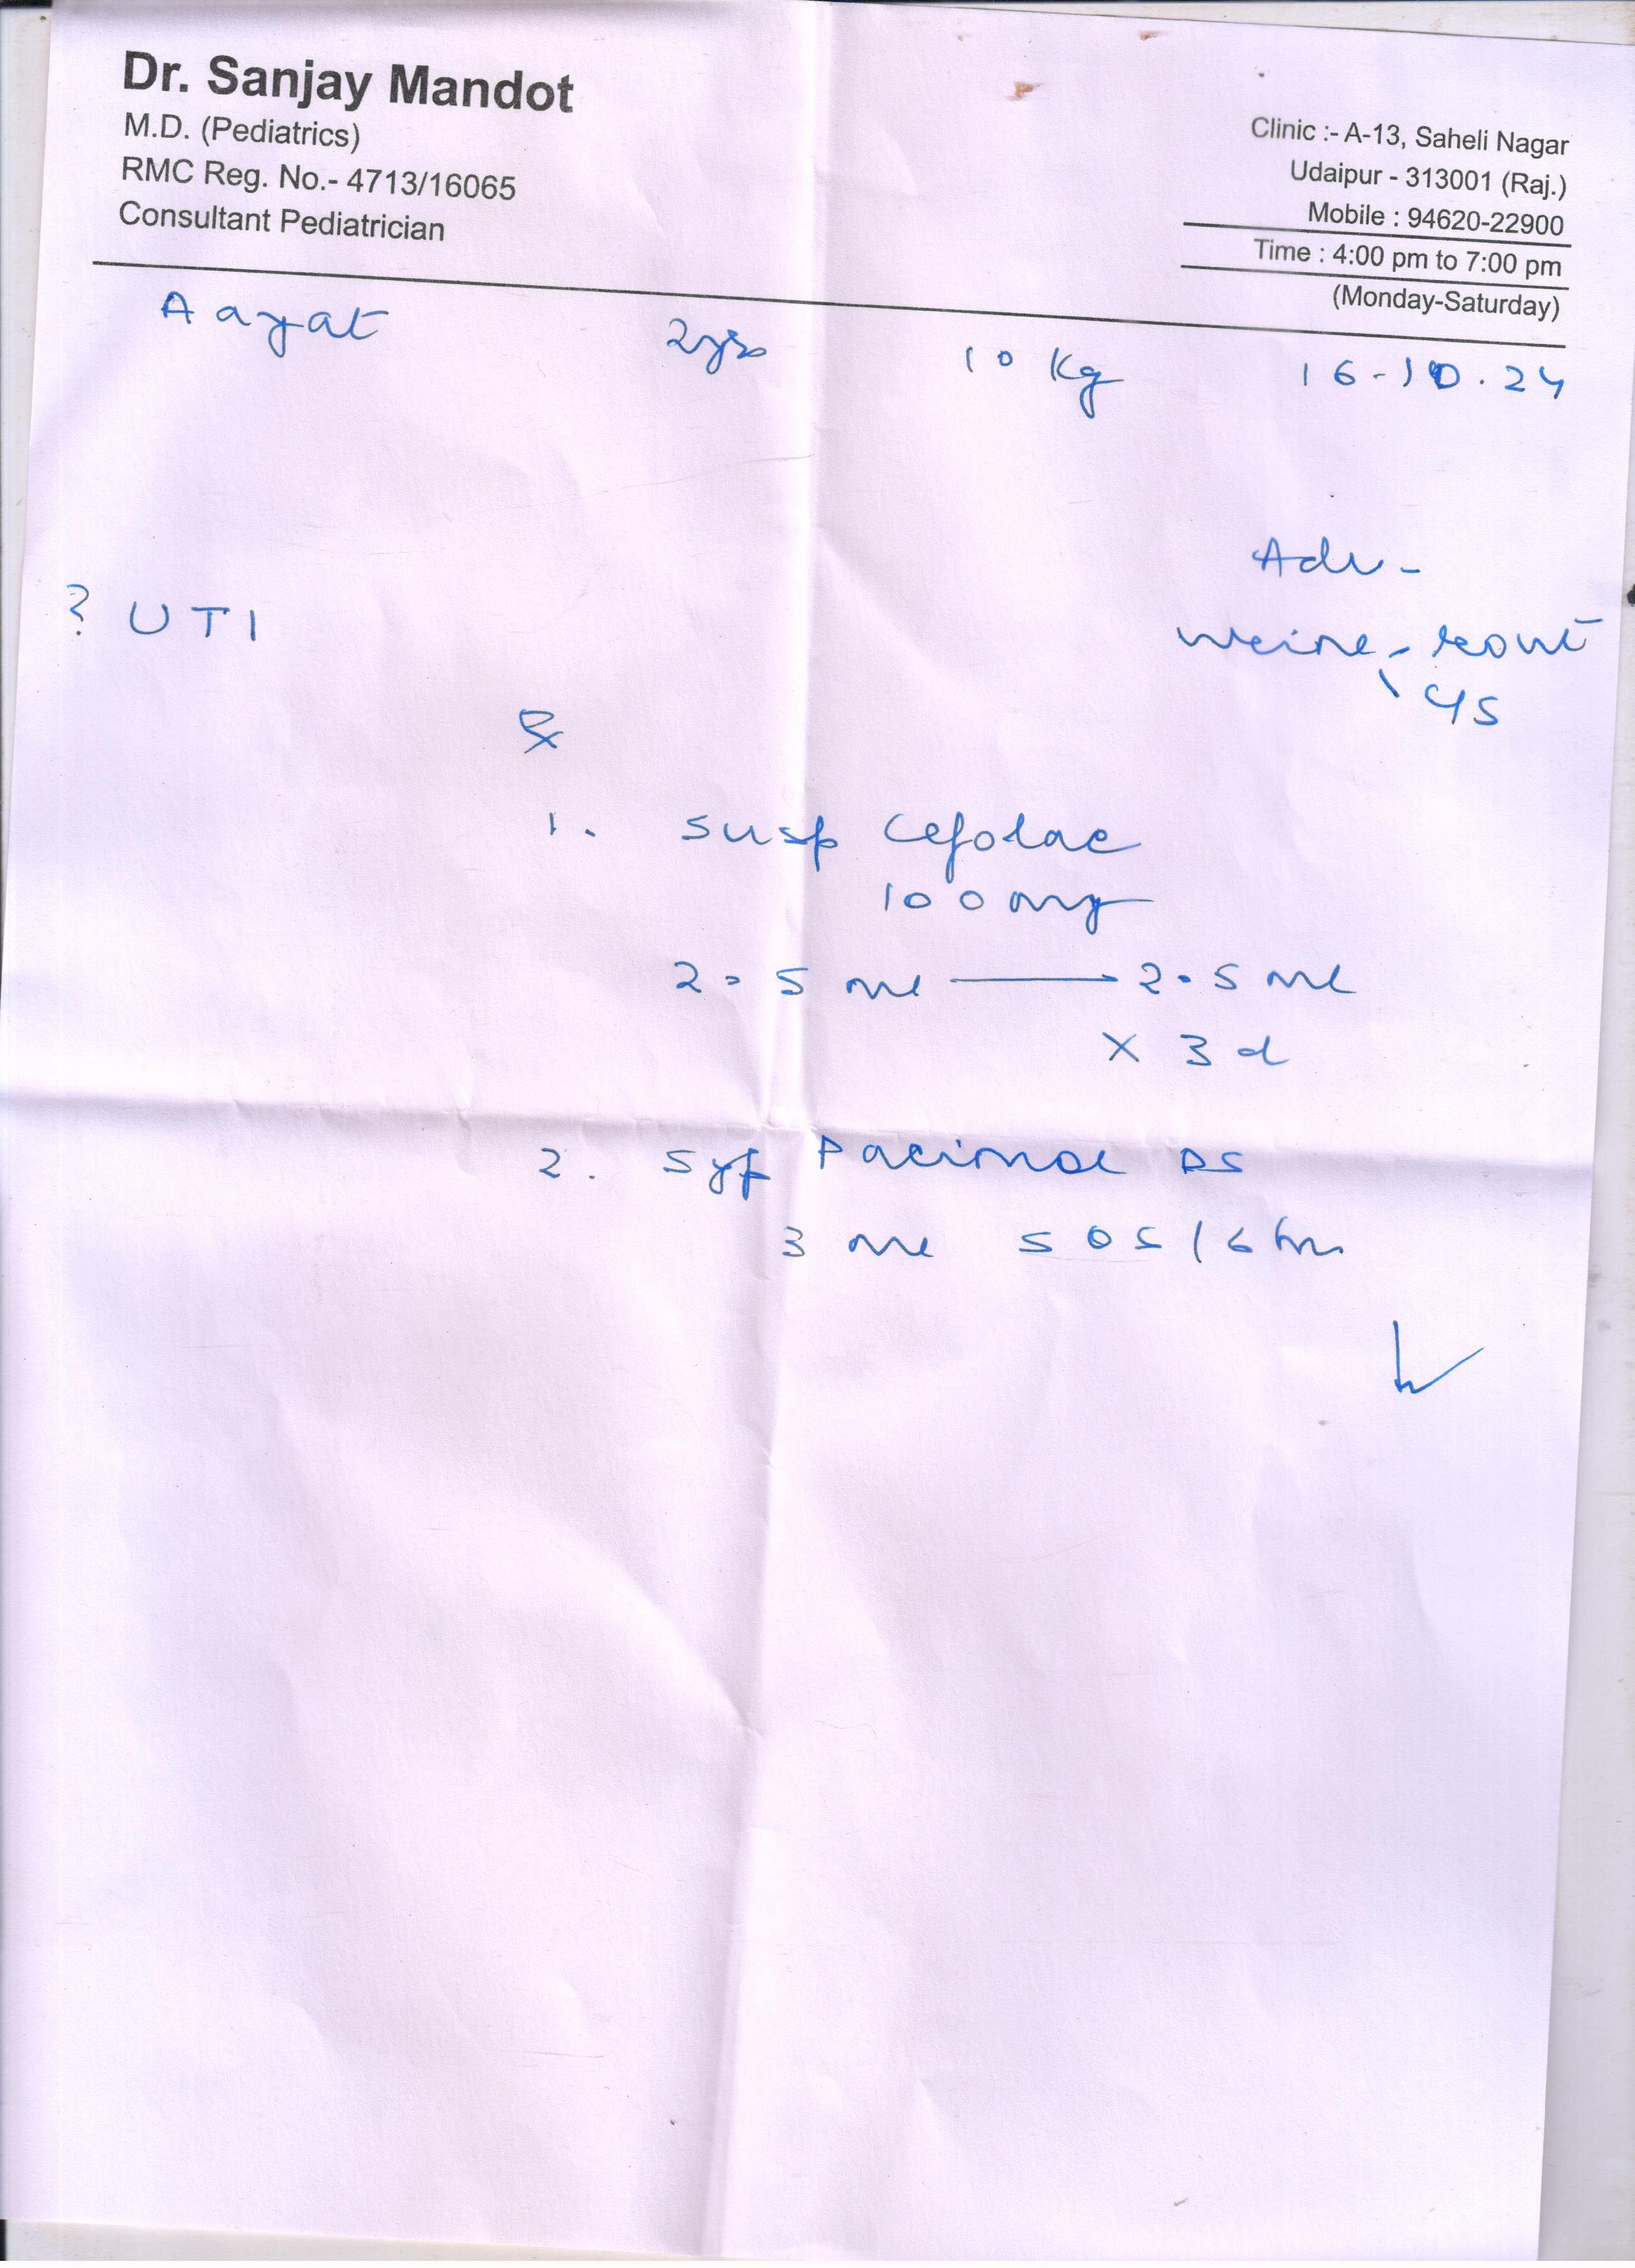 Dr. Sanjay Mandot
M.D. (Pediatrics)
RMC Reg. No.- 4713/16065
Consultant Pediatrician
Clinic :- A-13, Saheli Nagar
Udaipur - 313001 (Raj.)
Mobile : 94620-22900
Time : 4:00 pm to 7:00 pm
(Monday-Saturday)
Aayat 2yrs 10 Kg 16-10.24
Adv-
? UTI
Urine - rout
c/s
Rx
1. Susp Cefolac
100mg
2.5 ml — 2.5 ml
x 3d
2. Syp Pacimol DS
3 ml SOS / 6 hr